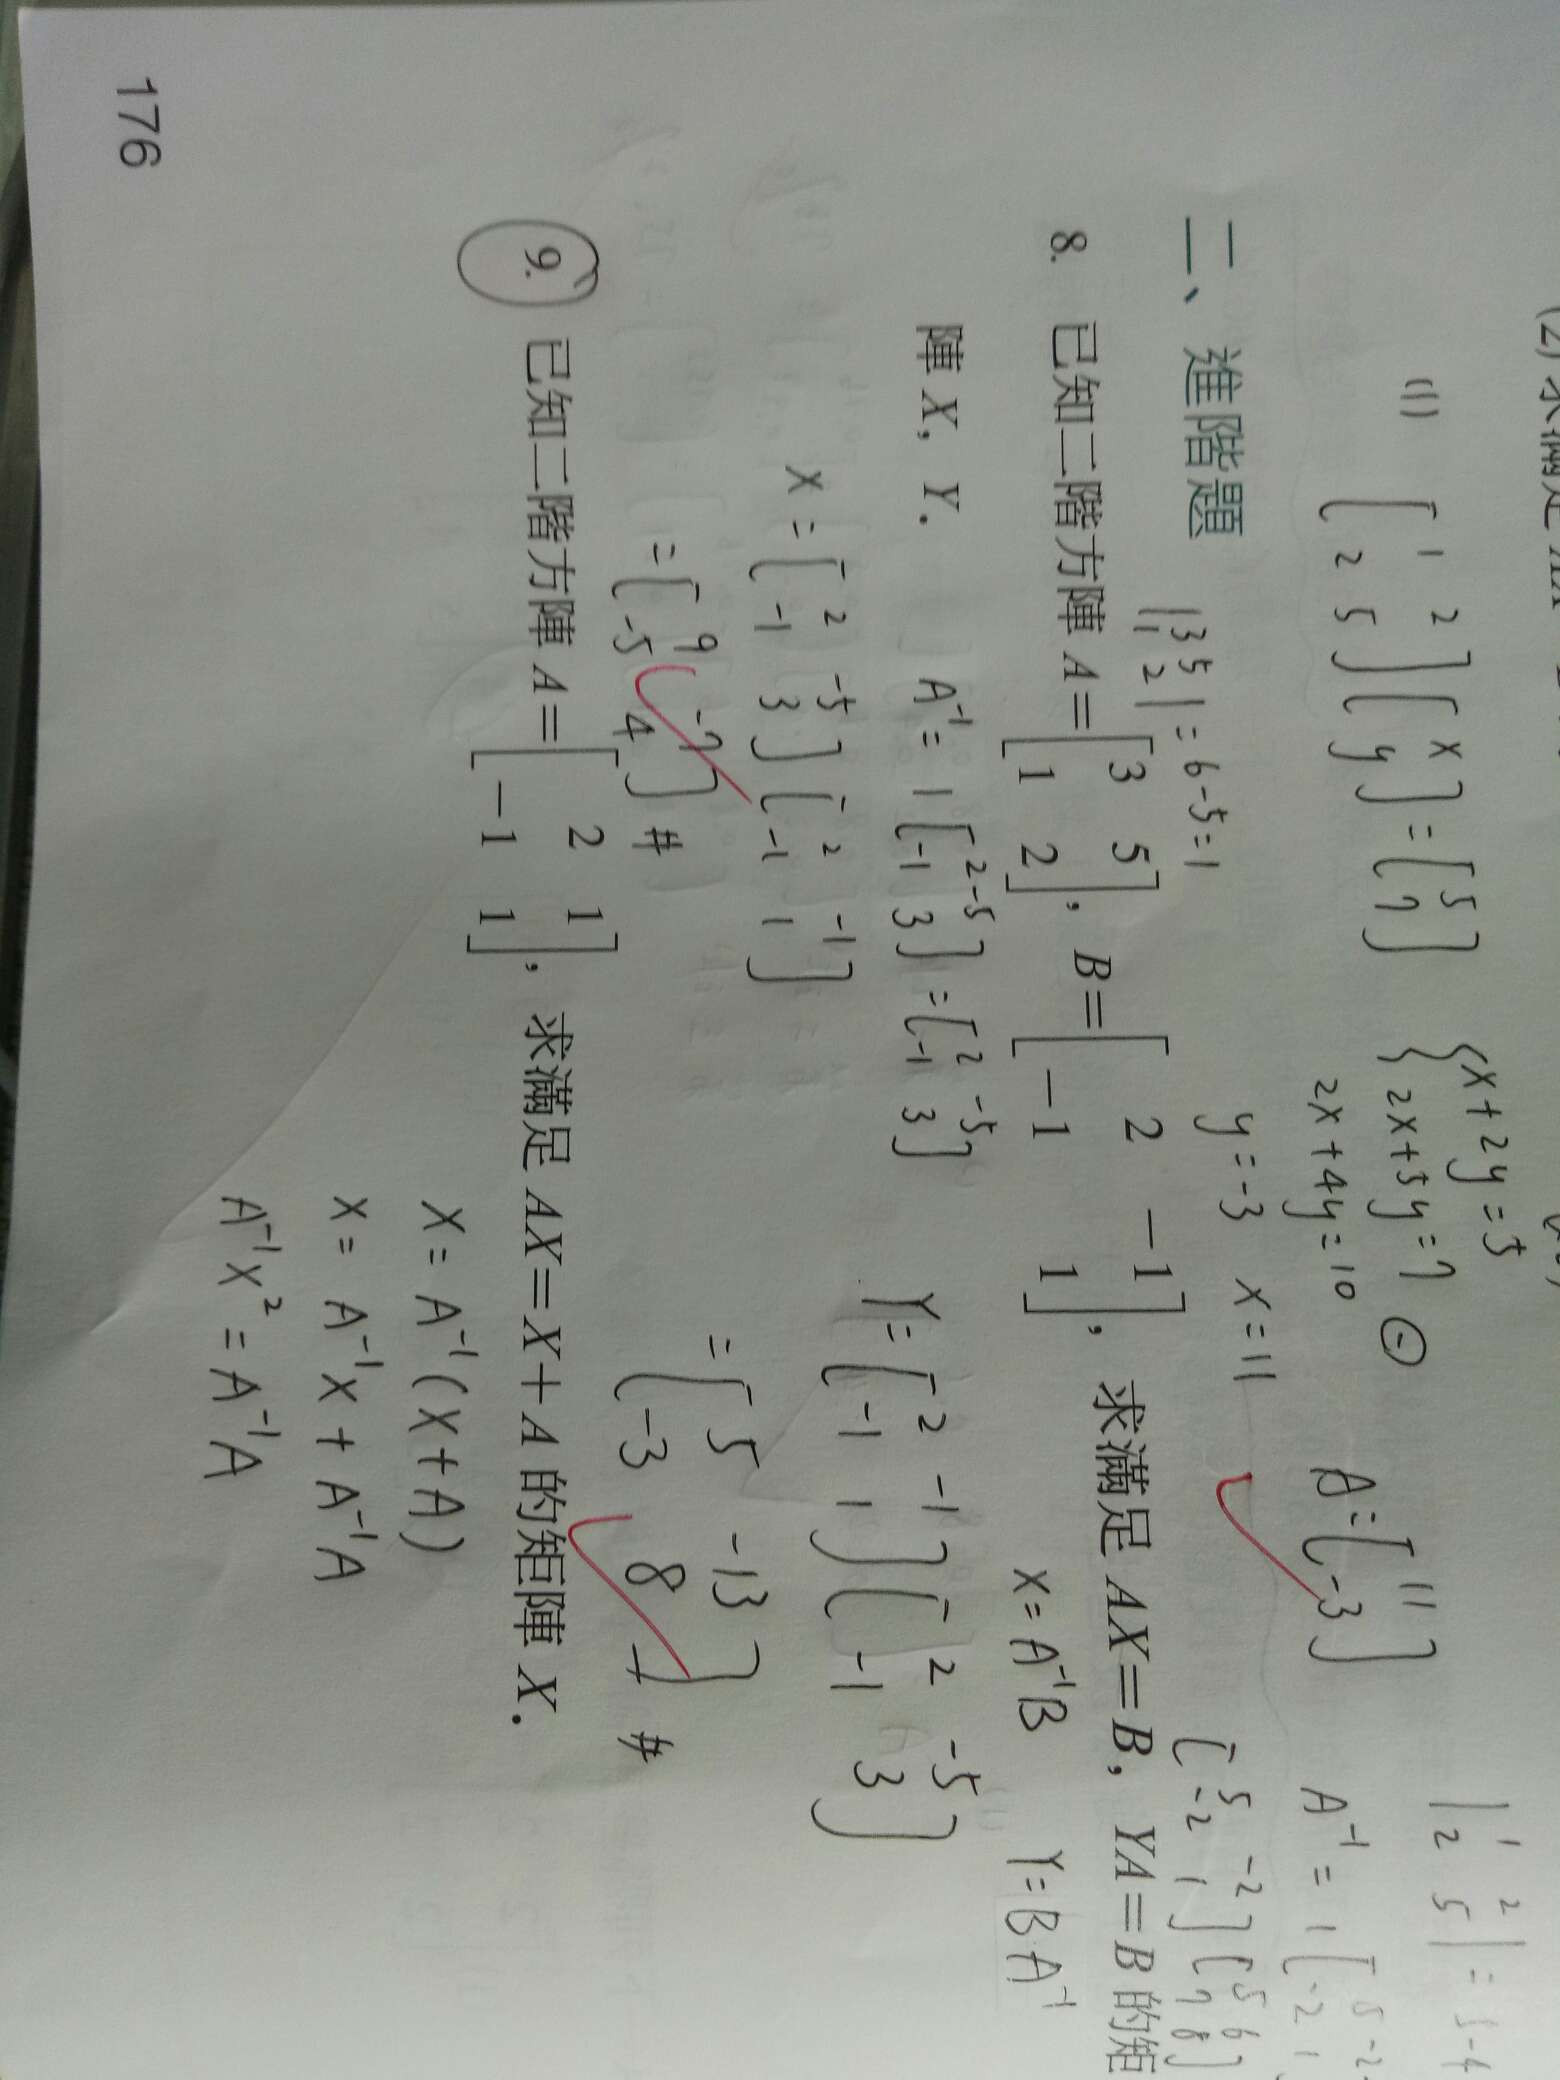 (1) [1 2 2 5][x y] = [5 7] { x+2y=5 2x+5y=7 ⊖
2x+4y=10
y=-3 x=11
A=[11 -3]
|1 2 2 5| =
A⁻¹ = 1 [5 -2 -2 1
[5 -2 -2 1][5 6 7 8]
二、進階題
|3 5 1 2| = 6-5=1
8. 已知二階方陣 A=[3 5 1 2], B=[2 -1 -1 1], 求滿足 AX=B, YA=B 的矩
陣 X, Y.
X=A⁻¹B Y=BA⁻¹
A⁻¹= 1 [2 -5 -1 3] = [2 -5 -1 3]
X = [2 -5 -1 3][2 -1 -1 1]
= [9 -7 -5 4] #
Y= [2 -1 -1 1][2 -5 -1 3]
= [5 -13 -3 8] #
9. 已知二階方陣 A=[2 1 -1 1], 求滿足 AX=X+A 的矩陣 X.
X = A⁻¹(X+A)
X = A⁻¹X + A⁻¹A
A⁻¹X² = A⁻¹A
176